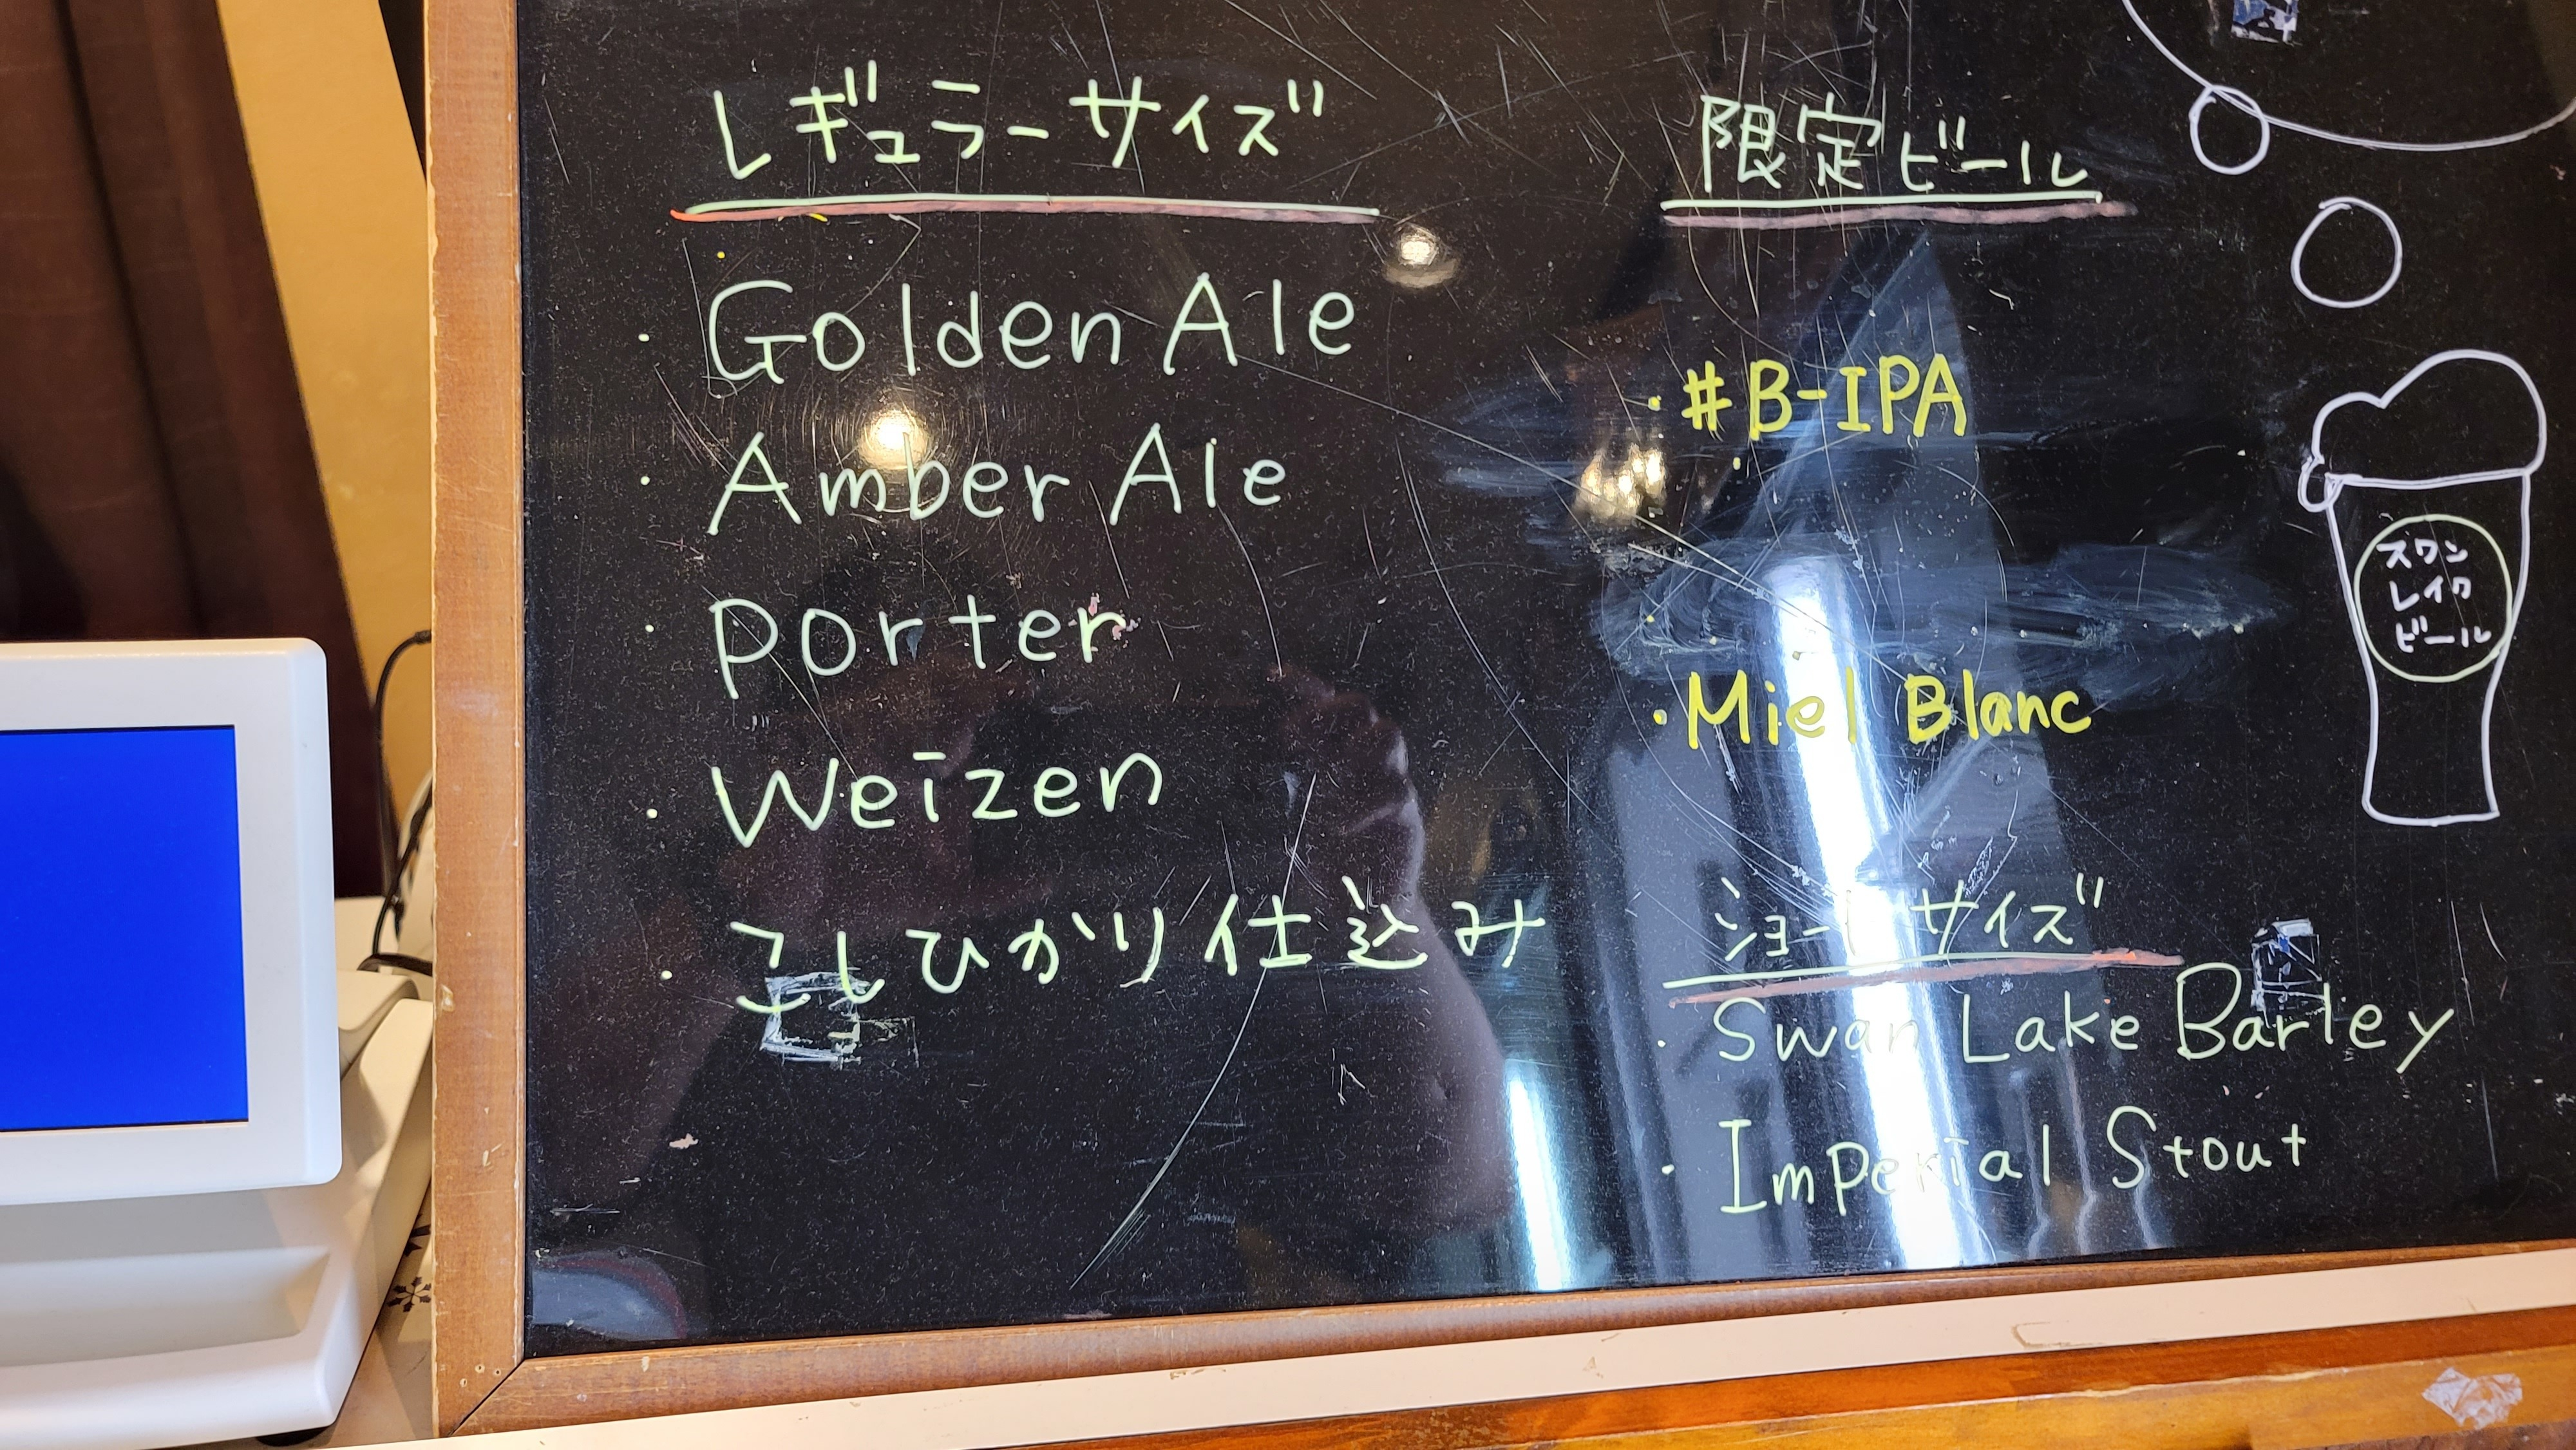 レギュラーサイズ
・Golden Ale
・Amber Ale
・Porter
・Weizen
・こしひかり仕込み
限定ビール
・#B-IPA
・Miel Blanc
ショートサイズ
・Swan Lake Barley
・Imperial Stout
スワン
レイク
ビール